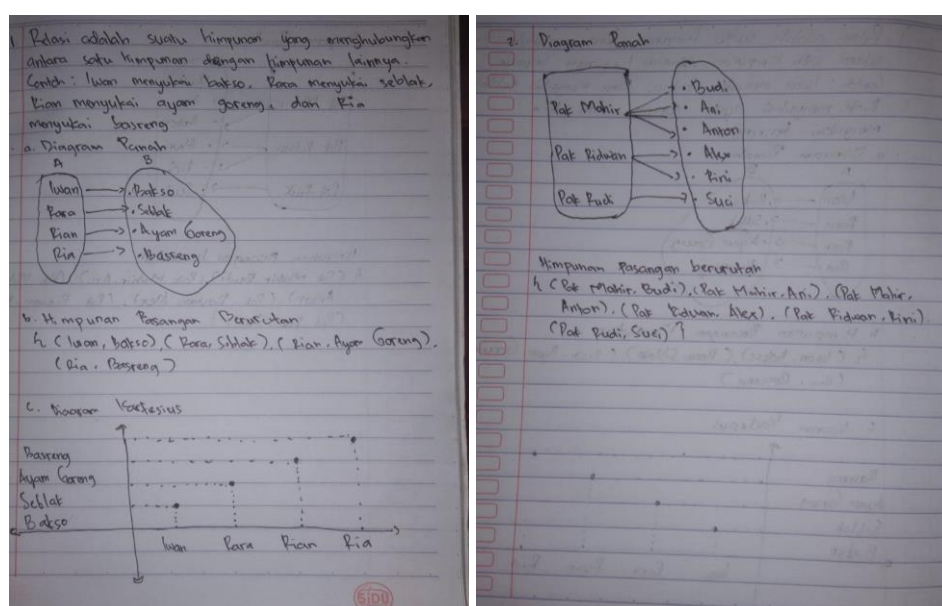 1. Relasi adalah suatu himpunan yang menghubungkan
antara satu himpunan dengan himpunan lainnya.
Contoh : Iwan menyukai bakso, Rara menyukai seblak,
Rian menyukai ayam goreng, dan Ria
menyukai basreng
a. Diagram Panah
A B
Iwan . Bakso
Rara . Seblak
Rian . Ayam Goreng
Ria . Basreng
b. Himpunan Pasangan Berurutan
{ (Iwan, Bakso), (Rara, Seblak), (Rian, Ayam Goreng),
(Ria, Basreng)
c. Diagram Kartesius
Basreng
Ayam Goreng
Seblak
Bakso
Iwan Rara Rian Ria
SIDU
2. Diagram Panah
Pak Mahir
Pak Ridwan
Pak Rudi
. Budi
. Ani
. Anton
. Alex
. Rini
. Suci
Himpunan Pasangan berurutan
{ (Pak Mahir, Budi), (Pak Mahir, Ani), (Pak Mahir,
Anton), (Pak Ridwan, Alex), (Pak Ridwan, Rini),
(Pak Rudi, Suci) }